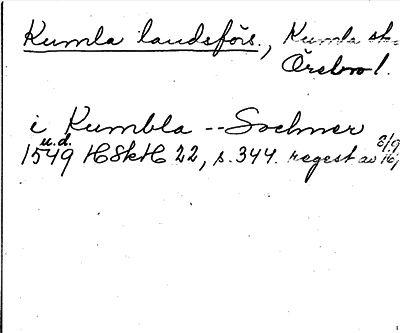 Kumla landsförs., Kumla sk
Örebro l.
i Kumbla -- Sochner
u.d. 8/9
1549 HSkH 22, s. 344. regest av 16/